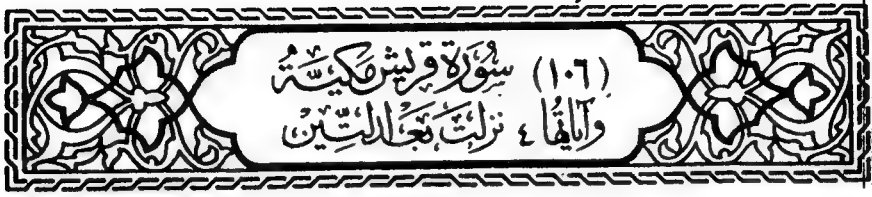 (١٠٦) سُورَةُ قُرَيْشٍ مَكِيَّةٌ
وَآيَاتُهَا ٤ نَزَلَتْ بَعْدَ التِّينِ